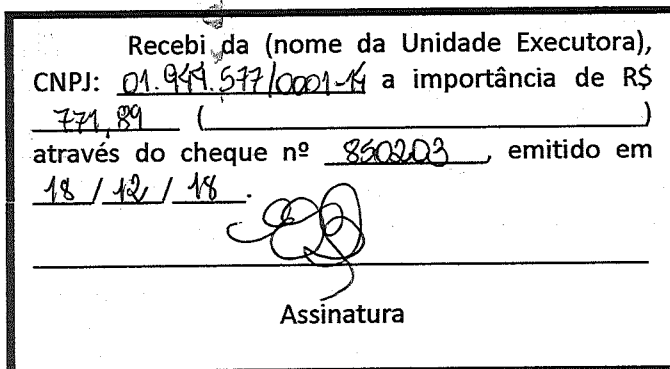 Recebi da (nome da Unidade Executora),
CNPJ: 01.944.577/0001-14 a importância de R$
771,89 (                    )
através do cheque nº 850203, emitido em
18 / 12 / 18.
Assinatura